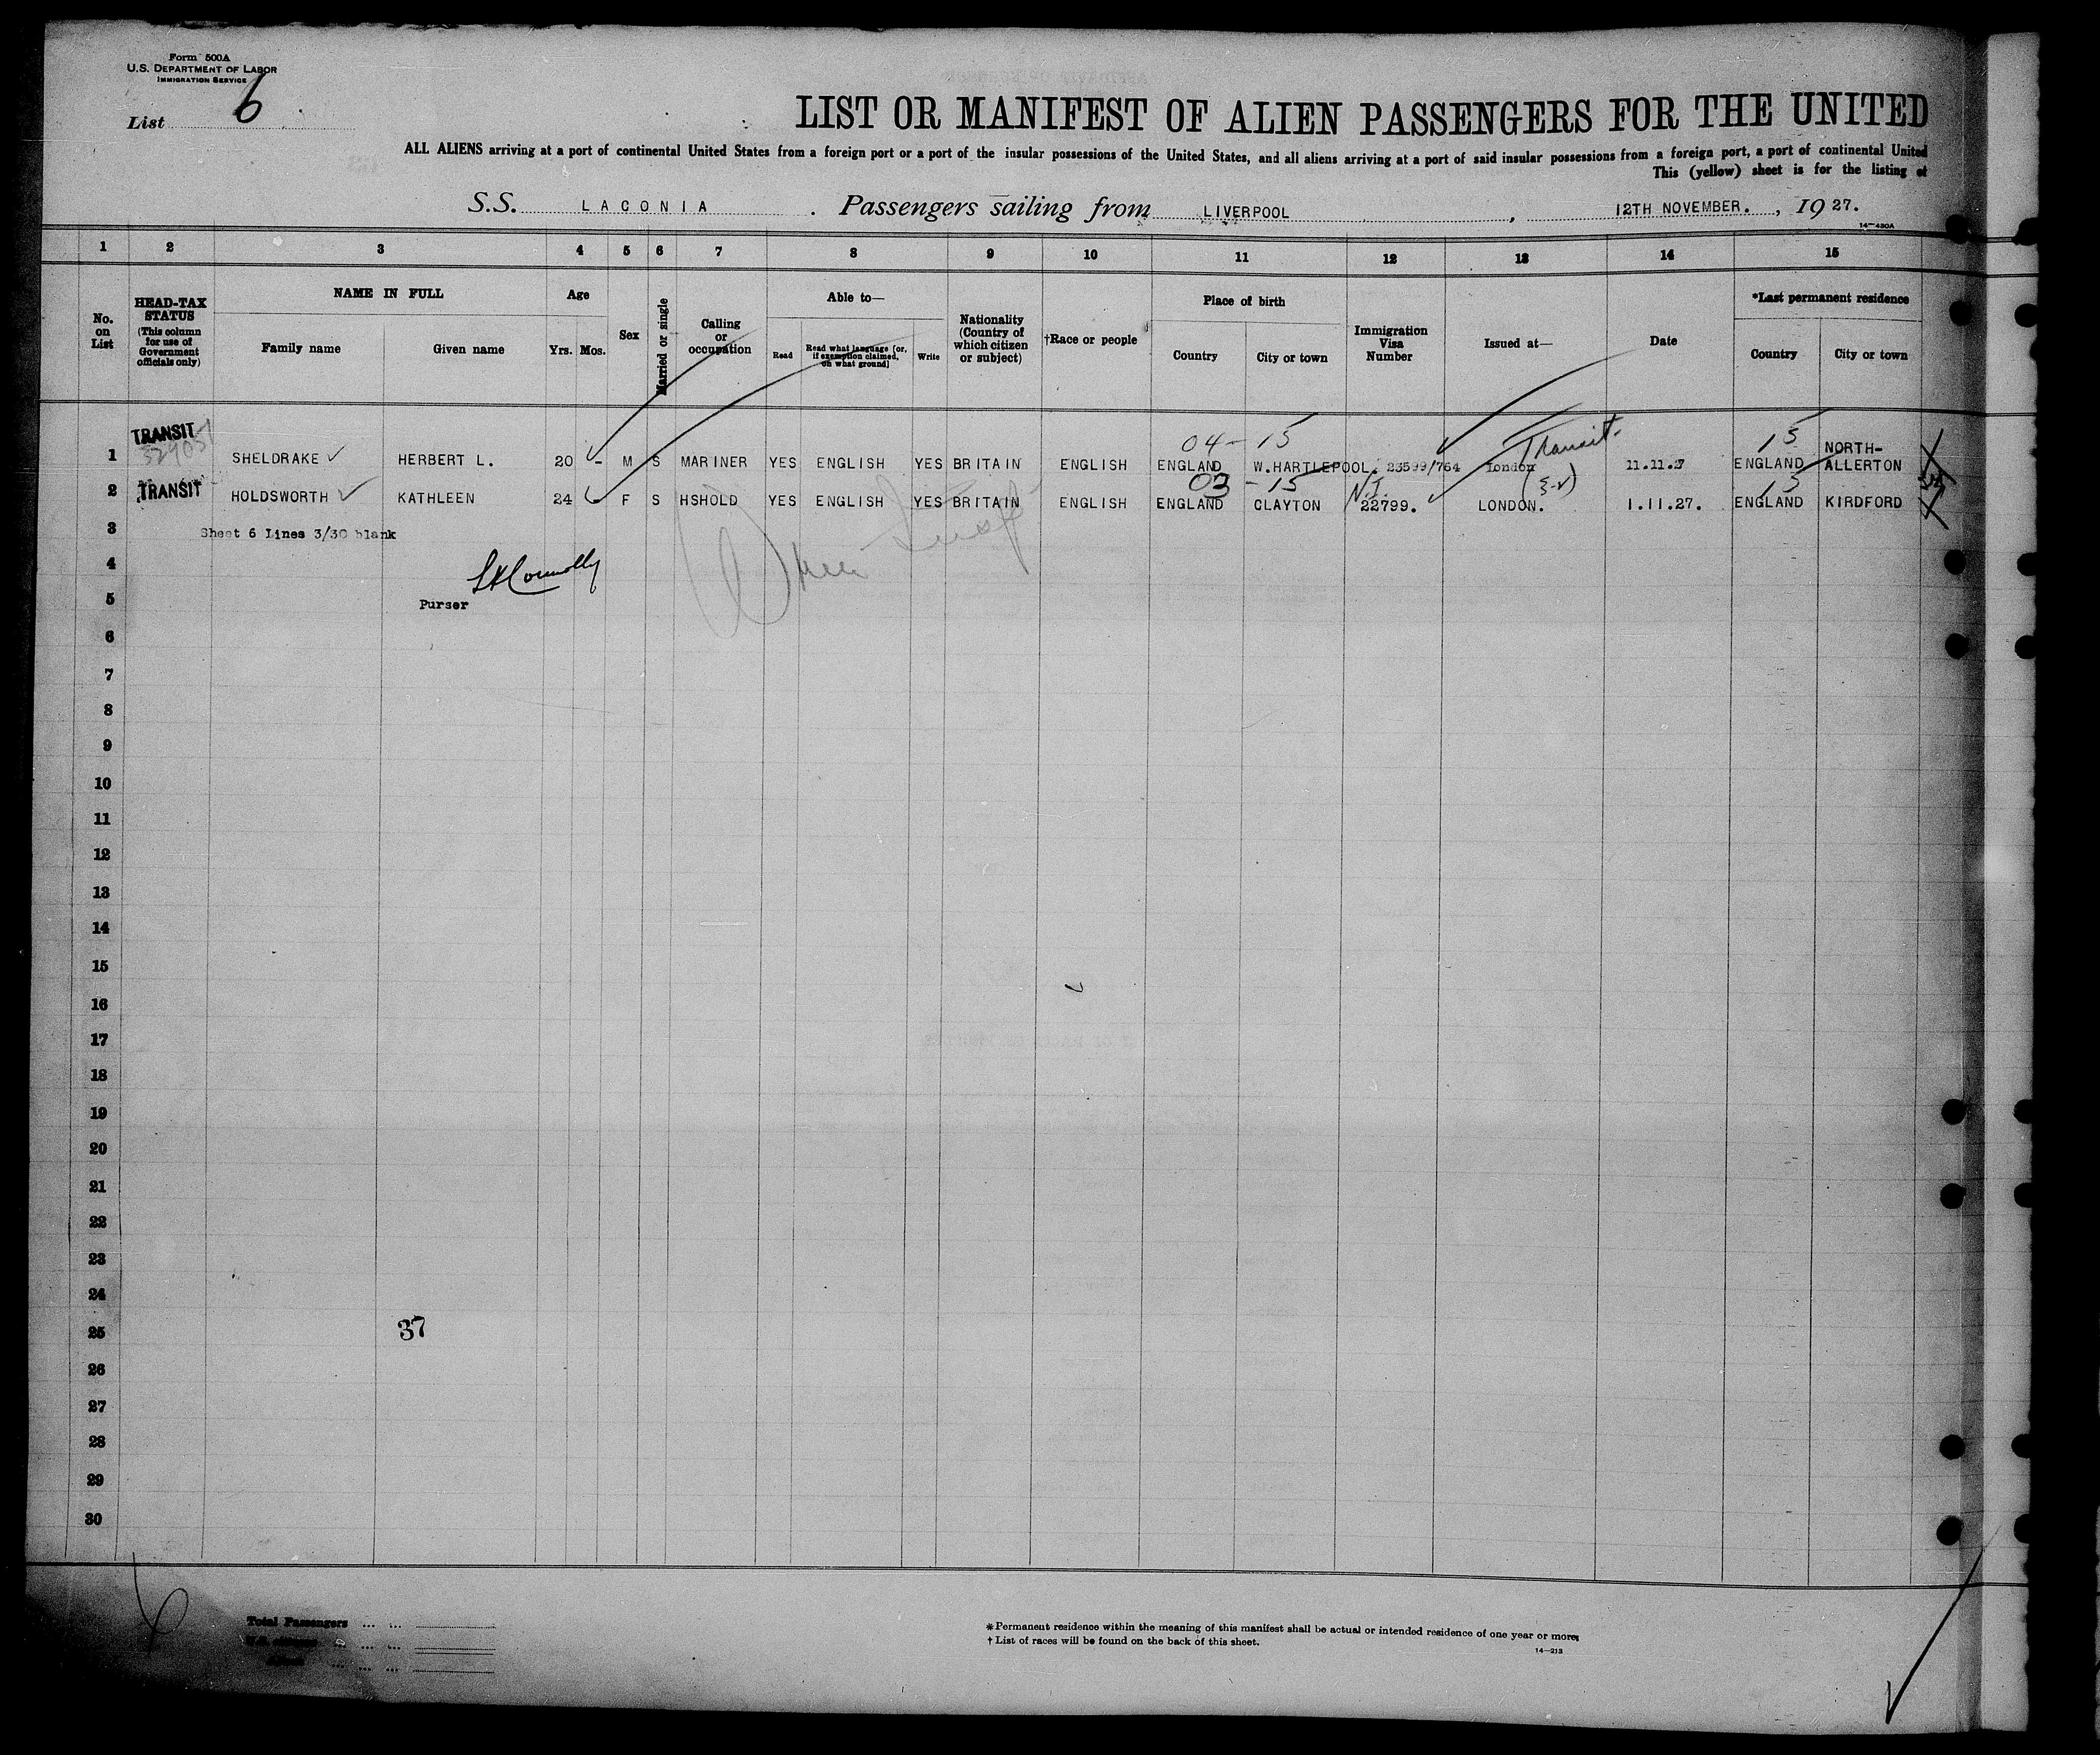 Form 500A
U.S. DEPARTMENT OF LABOR
IMMIGRATION SERVICE
List 6
LIST OR MANIFEST OF ALIEN PASSENGERS FOR THE UNITED
ALL ALIENS arriving at a port of continental United States from a foreign port or a port of the insular possessions of the United States, and all aliens arriving at a port of said insular possessions from a foreign port, a port of continental United
This (yellow) sheet is for the listing of
S.S. LACONIA. Passengers sailing from LIVERPOOL, 12TH NOVEMBER., 1927.
14—430A
1 2 3 4 5 6 7 8 9 10 11 12 13 14 15
No. on List
HEAD-TAX STATUS
(This column for use of Government officials only)
NAME IN FULL
Family name Given name
Age
Yrs. Mos.
Sex
Married or single
Calling or occupation
Able to—
Read
Read what language (or, if exemption claimed, on what ground)
Write
Nationality (Country of which citizen or subject)
†Race or people
Place of birth
Country City or town
Immigration Visa Number
Issued at—
Date
*Last permanent residence
Country City or town
04-15 Transit. 15
1 TRANSIT SHELDRAKE HERBERT L. 20 - M S MARINER YES ENGLISH YES BRITAIN ENGLISH ENGLAND W.HARTLEPOOL. 23599/764 London 11.11.27 ENGLAND NORTH-ALLERTON
03-15 N.I. 15
2 TRANSIT HOLDSWORTH KATHLEEN 24 F S HSHOLD YES ENGLISH YES BRITAIN ENGLISH ENGLAND CLAYTON 22799. LONDON. 1.11.27. ENGLAND KIRDFORD
3 Sheet 6 Lines 3/30 blank
4
Connolly
5 Purser
6
7
8
9
10
11
12
13
14
15
16
17
18
19
20
21
22
23
24
25 37
26
27
28
29
30
6
Total Passengers ... ...
*Permanent residence within the meaning of this manifest shall be actual or intended residence of one year or more.
†List of races will be found on the back of this sheet.
14—213